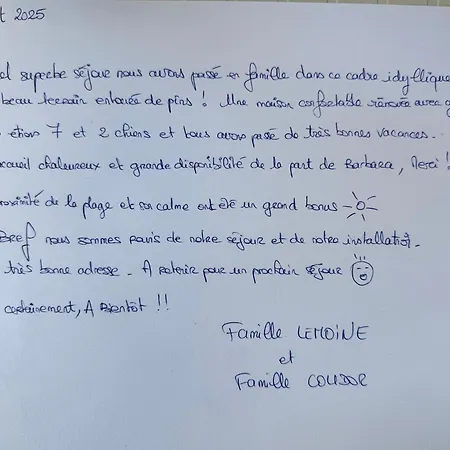 t 2025
el superbe séjour nous avons passé en famille dans ce cadre idyllique
beau terrain entourée de pins ! Une maison confortable rénovée avec g
étions 7 et 2 chiens et tous avons passé de très bonnes vacances.
ccueil chaleureux et grande disponibilité de la part de Barbara, Merci !
roximité de la plage et son calme ont été un grand bonus
Bref nous sommes ravis de notre séjour et de notre installation.
très bonne adresse. A retenir pour un prochain séjour
certainement, A Bientôt !!
Famille LEMOINE
et
Famille